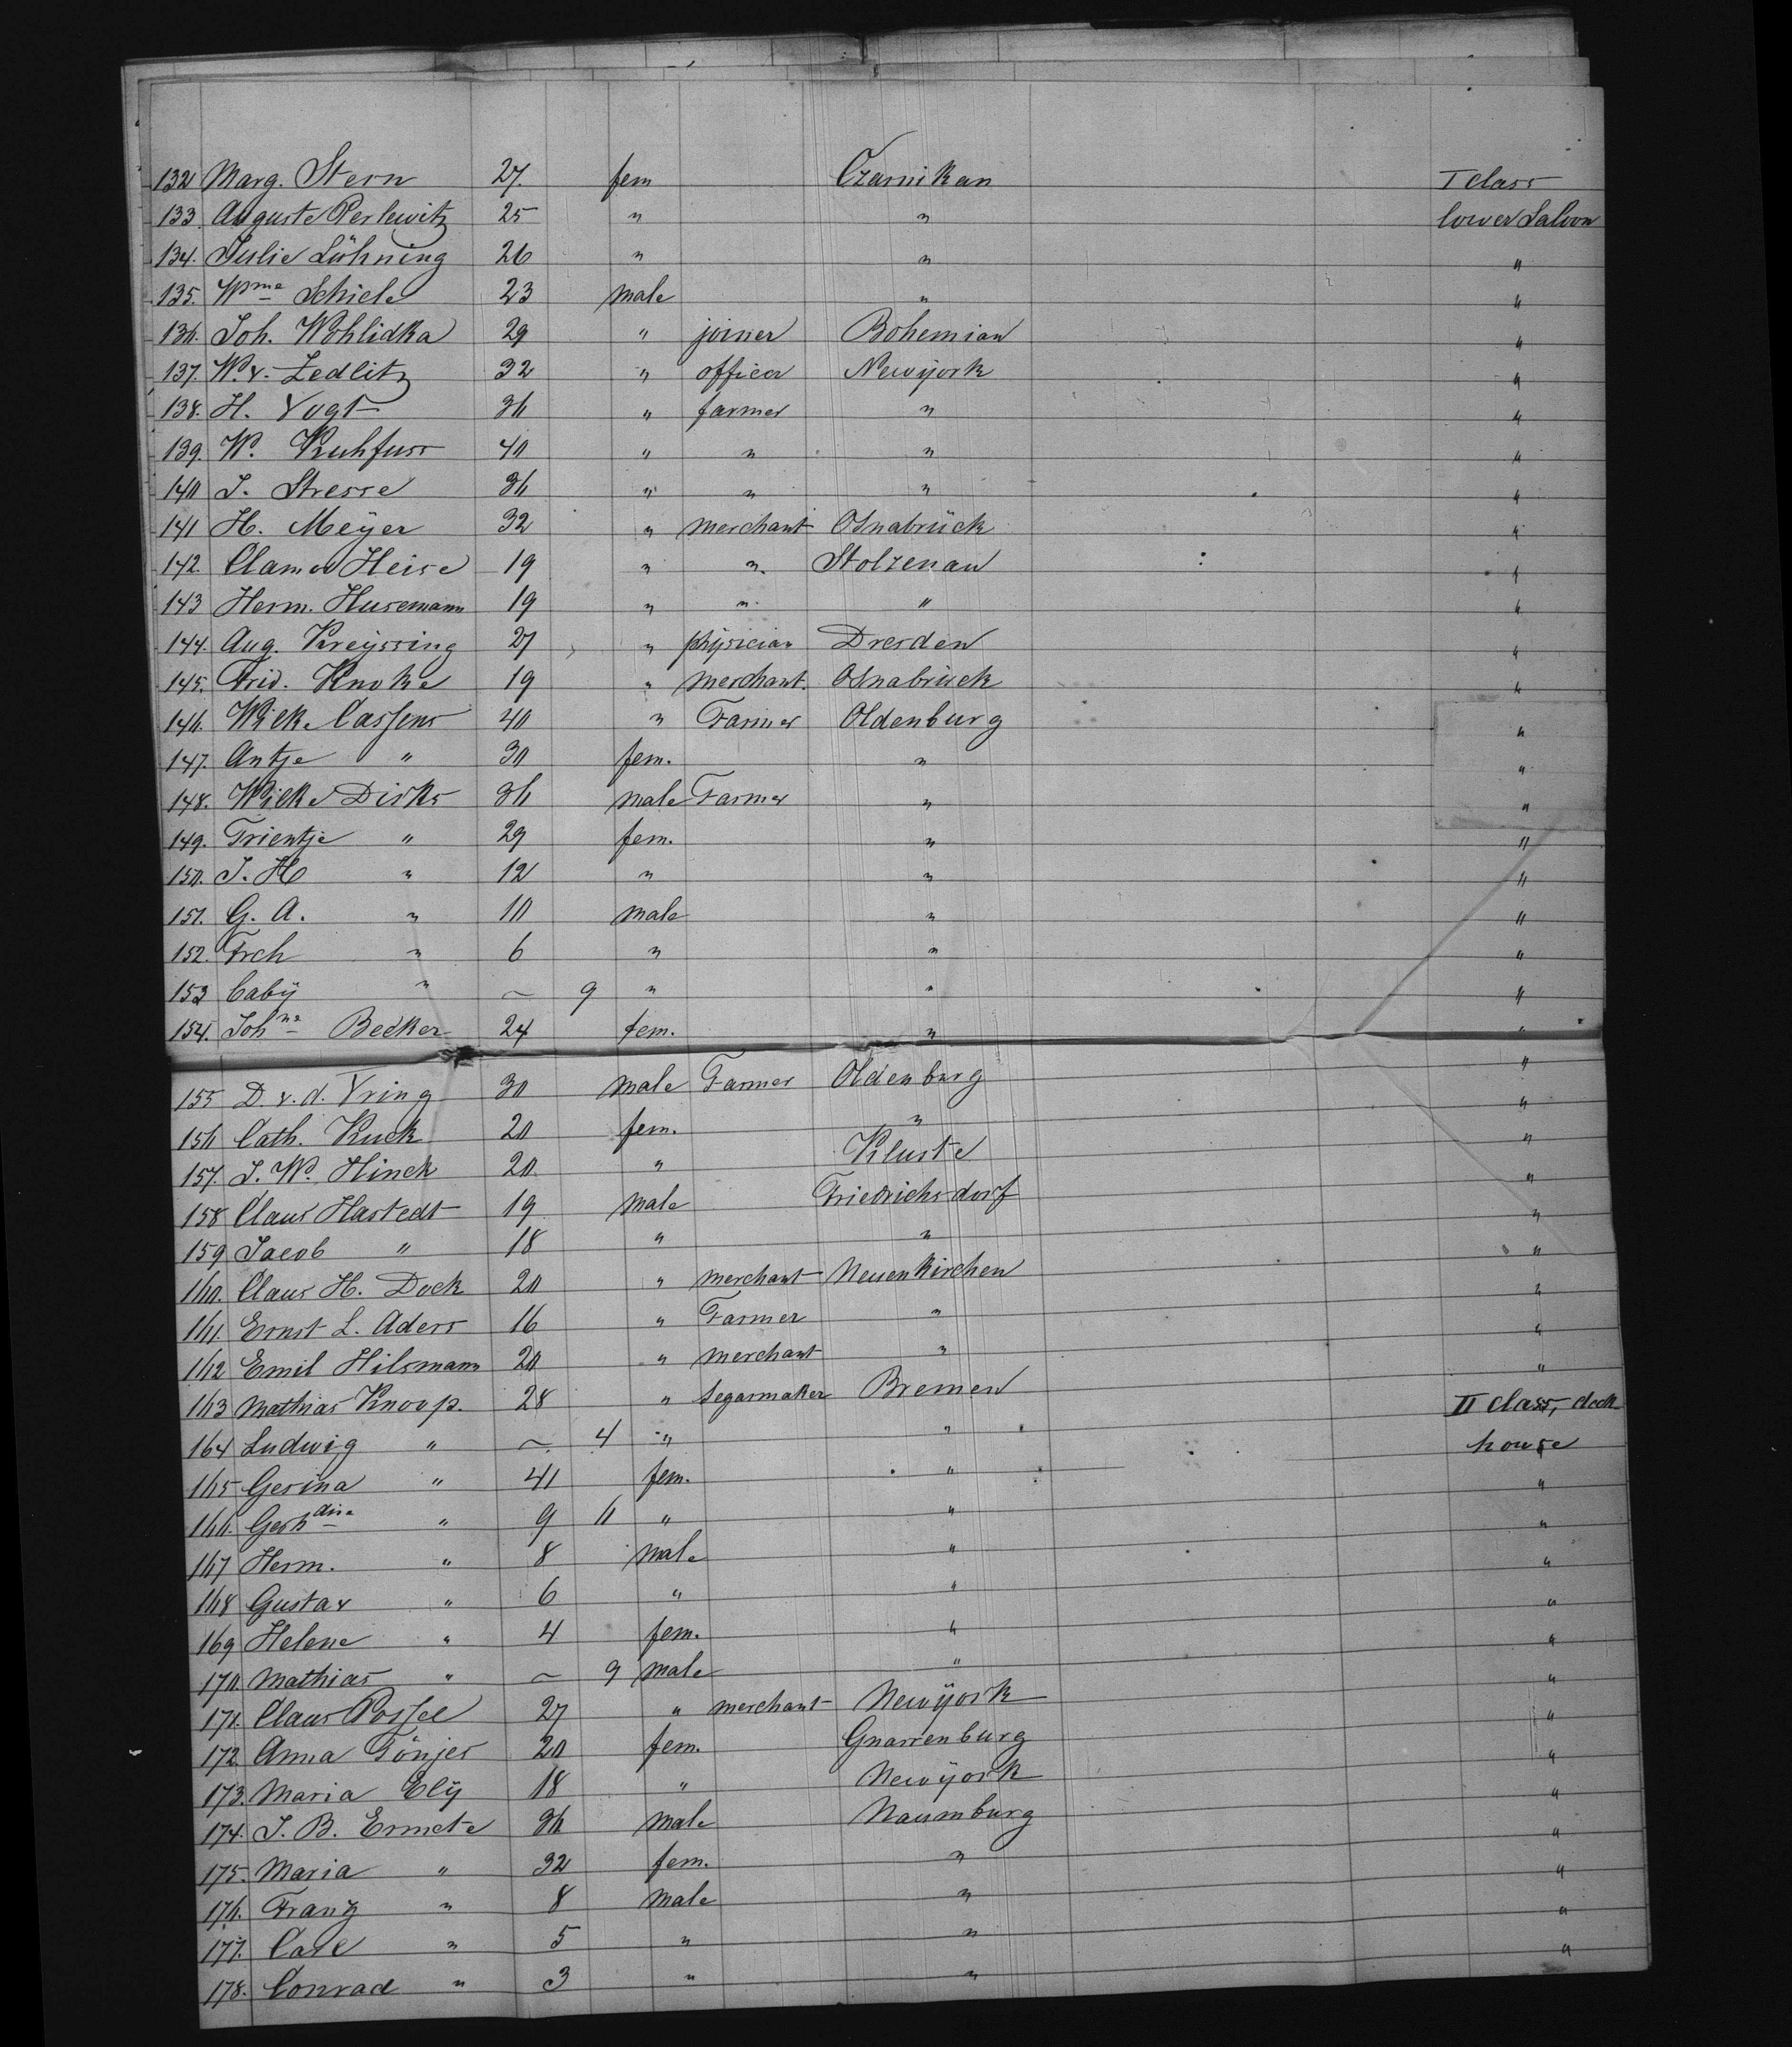 132 Marg. Stern 27. fem Czarnikau I class
133. Auguste Perlewitz 25 " " lower Saloon
134. Julie Lühning 26 " " "
135. Wme Schiele 23 male " "
136. Joh. Wohlidka 29 " joiner Bohemian "
137. W. v. Zedlitz 32 " officer Newyork "
138. H. Vogt 36 " farmer " "
139. W. Kuhfuss 40 " " " "
140 J. Stresse 36 " " " "
141 H. Meÿer 32 " merchant Osnabrück "
142. Clamor Heise 19 " " Stolzenau "
143 Herm. Husemann 19 " " " "
144. Aug. Kreÿssing 27 " physician Dresden "
145. Frid. Knoke 19 " merchant. Osnabrück "
146. Wilke Cassens 40 " Farmer Oldenburg "
147. Antje " 30 fem. " "
148. Wilke Dirks 36 male Farmer " "
149. Trientje " 29 fem. " "
150. J. H " 12 " " "
151. G. A. " 10 male " "
152. Frch " 6 " " "
153 Baby " – 9 " " "
154. Johne Becker 24 fem. " "
155 D. v. d. Vring 30 male Farmer Oldenburg "
156 Cath. Kuck 20 fem. " "
157. J. W. Hinck 20 " Kluste "
158 Claus Hastedt 19 male Friedrichsdorf "
159 Jacob " 18 " " "
160. Claus H. Dock 20 " merchant Neuenkirchen "
161. Ernst L. Aders 16 " Farmer " "
162 Emil Hilsmann 20 " merchant " "
163 Mathias Knoop. 28 " Segarmaker Bremen II class, deck
164 Ludwig " – 4 " " house
165 Gesina " 41 fem. " "
166. Gerhdine " 9 6 " " "
167 Herm. " 8 male " "
168 Gustav " 6 " " "
169 Helene " 4 fem. " "
170. Mathias " – 9 male " "
171. Claus Possel 27 " merchant Newÿork "
172 Anna Tönjes 20 fem. Gnarrenburg "
173. Maria Elÿ 18 " Newÿork "
174. J. B. Ermete 36 male Naumburg "
175. Maria " 32 fem. " "
176. Franz " 8 male " "
177. Carl " 5 " " "
178. Conrad " 3 " " "